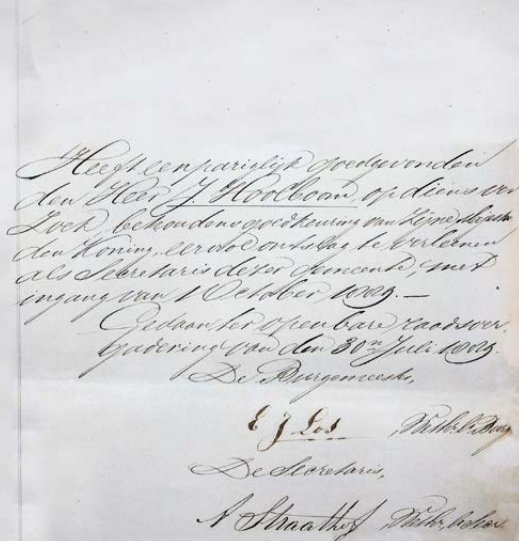 Heeft eenpariglijk goedgevonden
den Heer J. Hoolboom, op diens ver
zoek, behoudens goedkeuring van Zijne Majesteit
den Koning, eervol ontslag te verleenen
als Secretaris dezer gemeente, met
ingang van 1 October 1889. —
Gedaan ter openbare raadsver
gadering van den 30n Juli 1889.
De Burgemeester,
E J Los
De Secretaris,
N Straathof